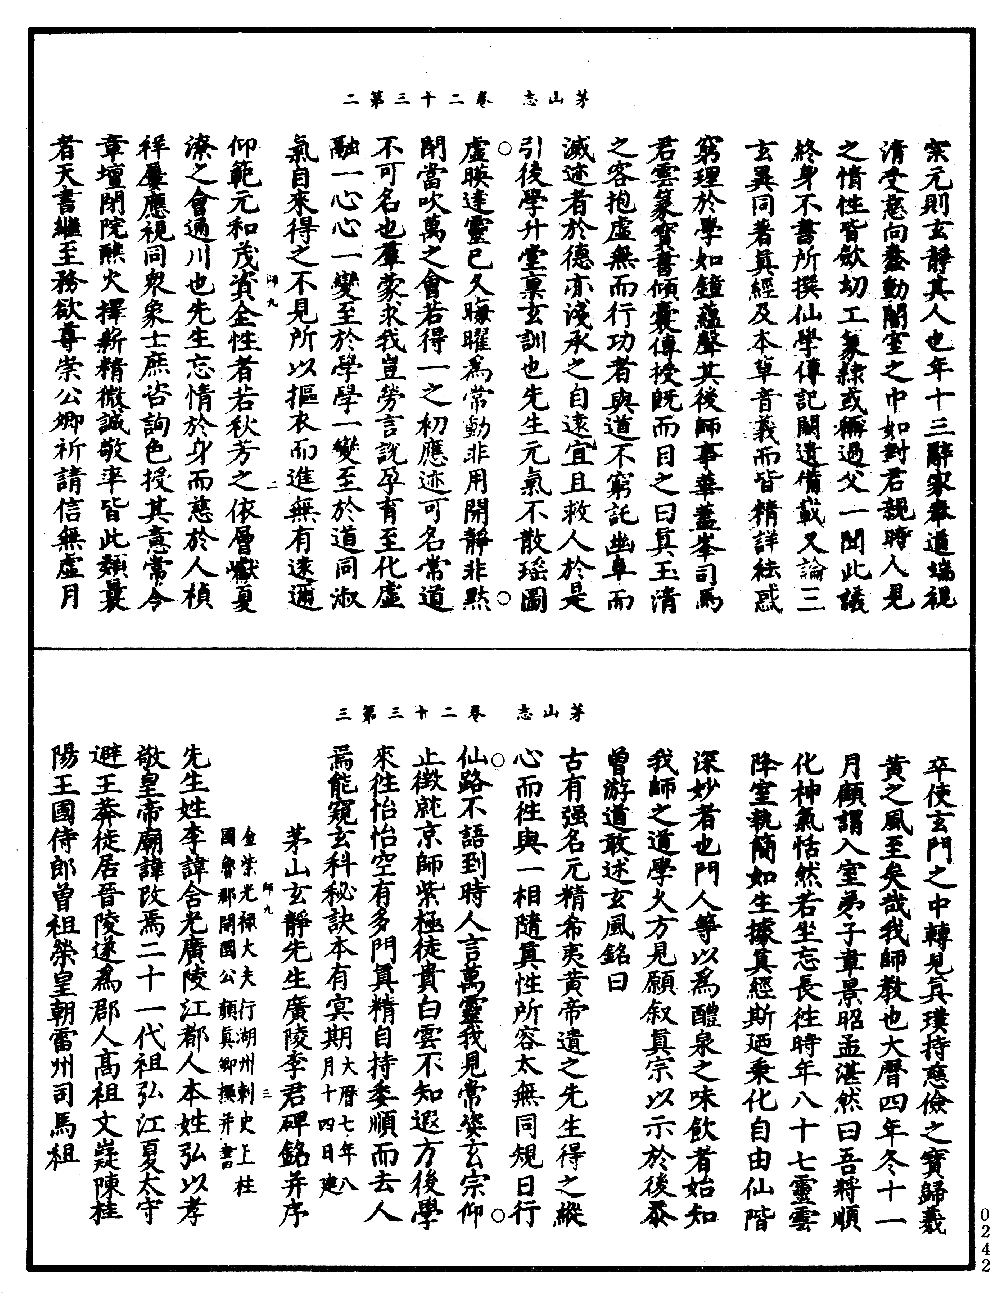 茅山志　卷二十三第二
宗元則玄靜其人也年十三辭家奉道端視
清受慈向蠢動闇室之中如對君親時人見
之情性皆斂劫工篆隸或稱過父一聞此議
終身不書所撰仙學傳記闕遺備載又論三
玄異同著真經及本草音義而皆精詳祛惑
窮理於學如鐘蘊聲其後師事華蓋峯司馬
君雲篆寶書傾囊傳授既而目之曰真玉清
之客抱虛無而行功者與道不窮託幽阜而
滅迹者於德亦淺承之自遠宜且救人於是
引後學升堂稟玄訓也先生元氣不散瑶圖
虛暎達靈已久晦曜爲常動非用開靜非默
閉當吹萬之會若得一之初應迹可名常道
不可名也羣蒙求我豈勞言說孕育至化虛
融一心心一變至於學學一變至於道同淑
氣自來得之不見所以摳衣而進無有遠邇
師九　二
仰範元和茂資全性者若秋芳之依層巘夏
潦之會通川也先生忘情於身而慈於人楨
祥屢應視同衆象士庶咨詢色授其意常令
章壇閉院醮火擇薪精微誠敬率皆此類曩
者天書繼至務欲尊崇公卿祈請信無虛月
茅山志　卷二十三第三
卒使玄門之中轉見真璞持慈儉之寶歸羲
黃之風至矣哉我師教也大曆四年冬十一
月顧謂入室弟子韋景昭孟湛然曰吾將順
化神氣恬然若坐忘長往時年八十七靈雲
降室執簡如生據真經斯迺乘化自由仙階
深妙者也門人等以爲醴泉之味飲者始知
我師之道學久方見願叙真宗以示於後忝
曾游道敢述玄風銘曰
古有强名元精希夷黄帝遺之先生得之縱
心而往與一相隨真性所容太無同規日行
仙路不語到時人言萬靈我見常姿玄宗仰
止徴就京師紫極徒貴白雲不知遐方後學
來往怡怡空有多門真精自持委順而去人
焉能窺玄科秘訣本有㝠期大曆七年八月十四日建
茅山玄靜先生廣陵李君碑銘并序
師九　三
金紫光祿大夫行湖州刺史上柱
國魯郡開國公顔真卿撰并書
先生姓李諱含光廣陵江都人本姓弘以孝
敬皇帝廟諱改焉二十一代祖弘江夏太守
避王莽徙居晉陵遂爲郡人高祖文嶷陳桂
陽王國侍郎曾祖榮皇朝雷州司馬祖
0242